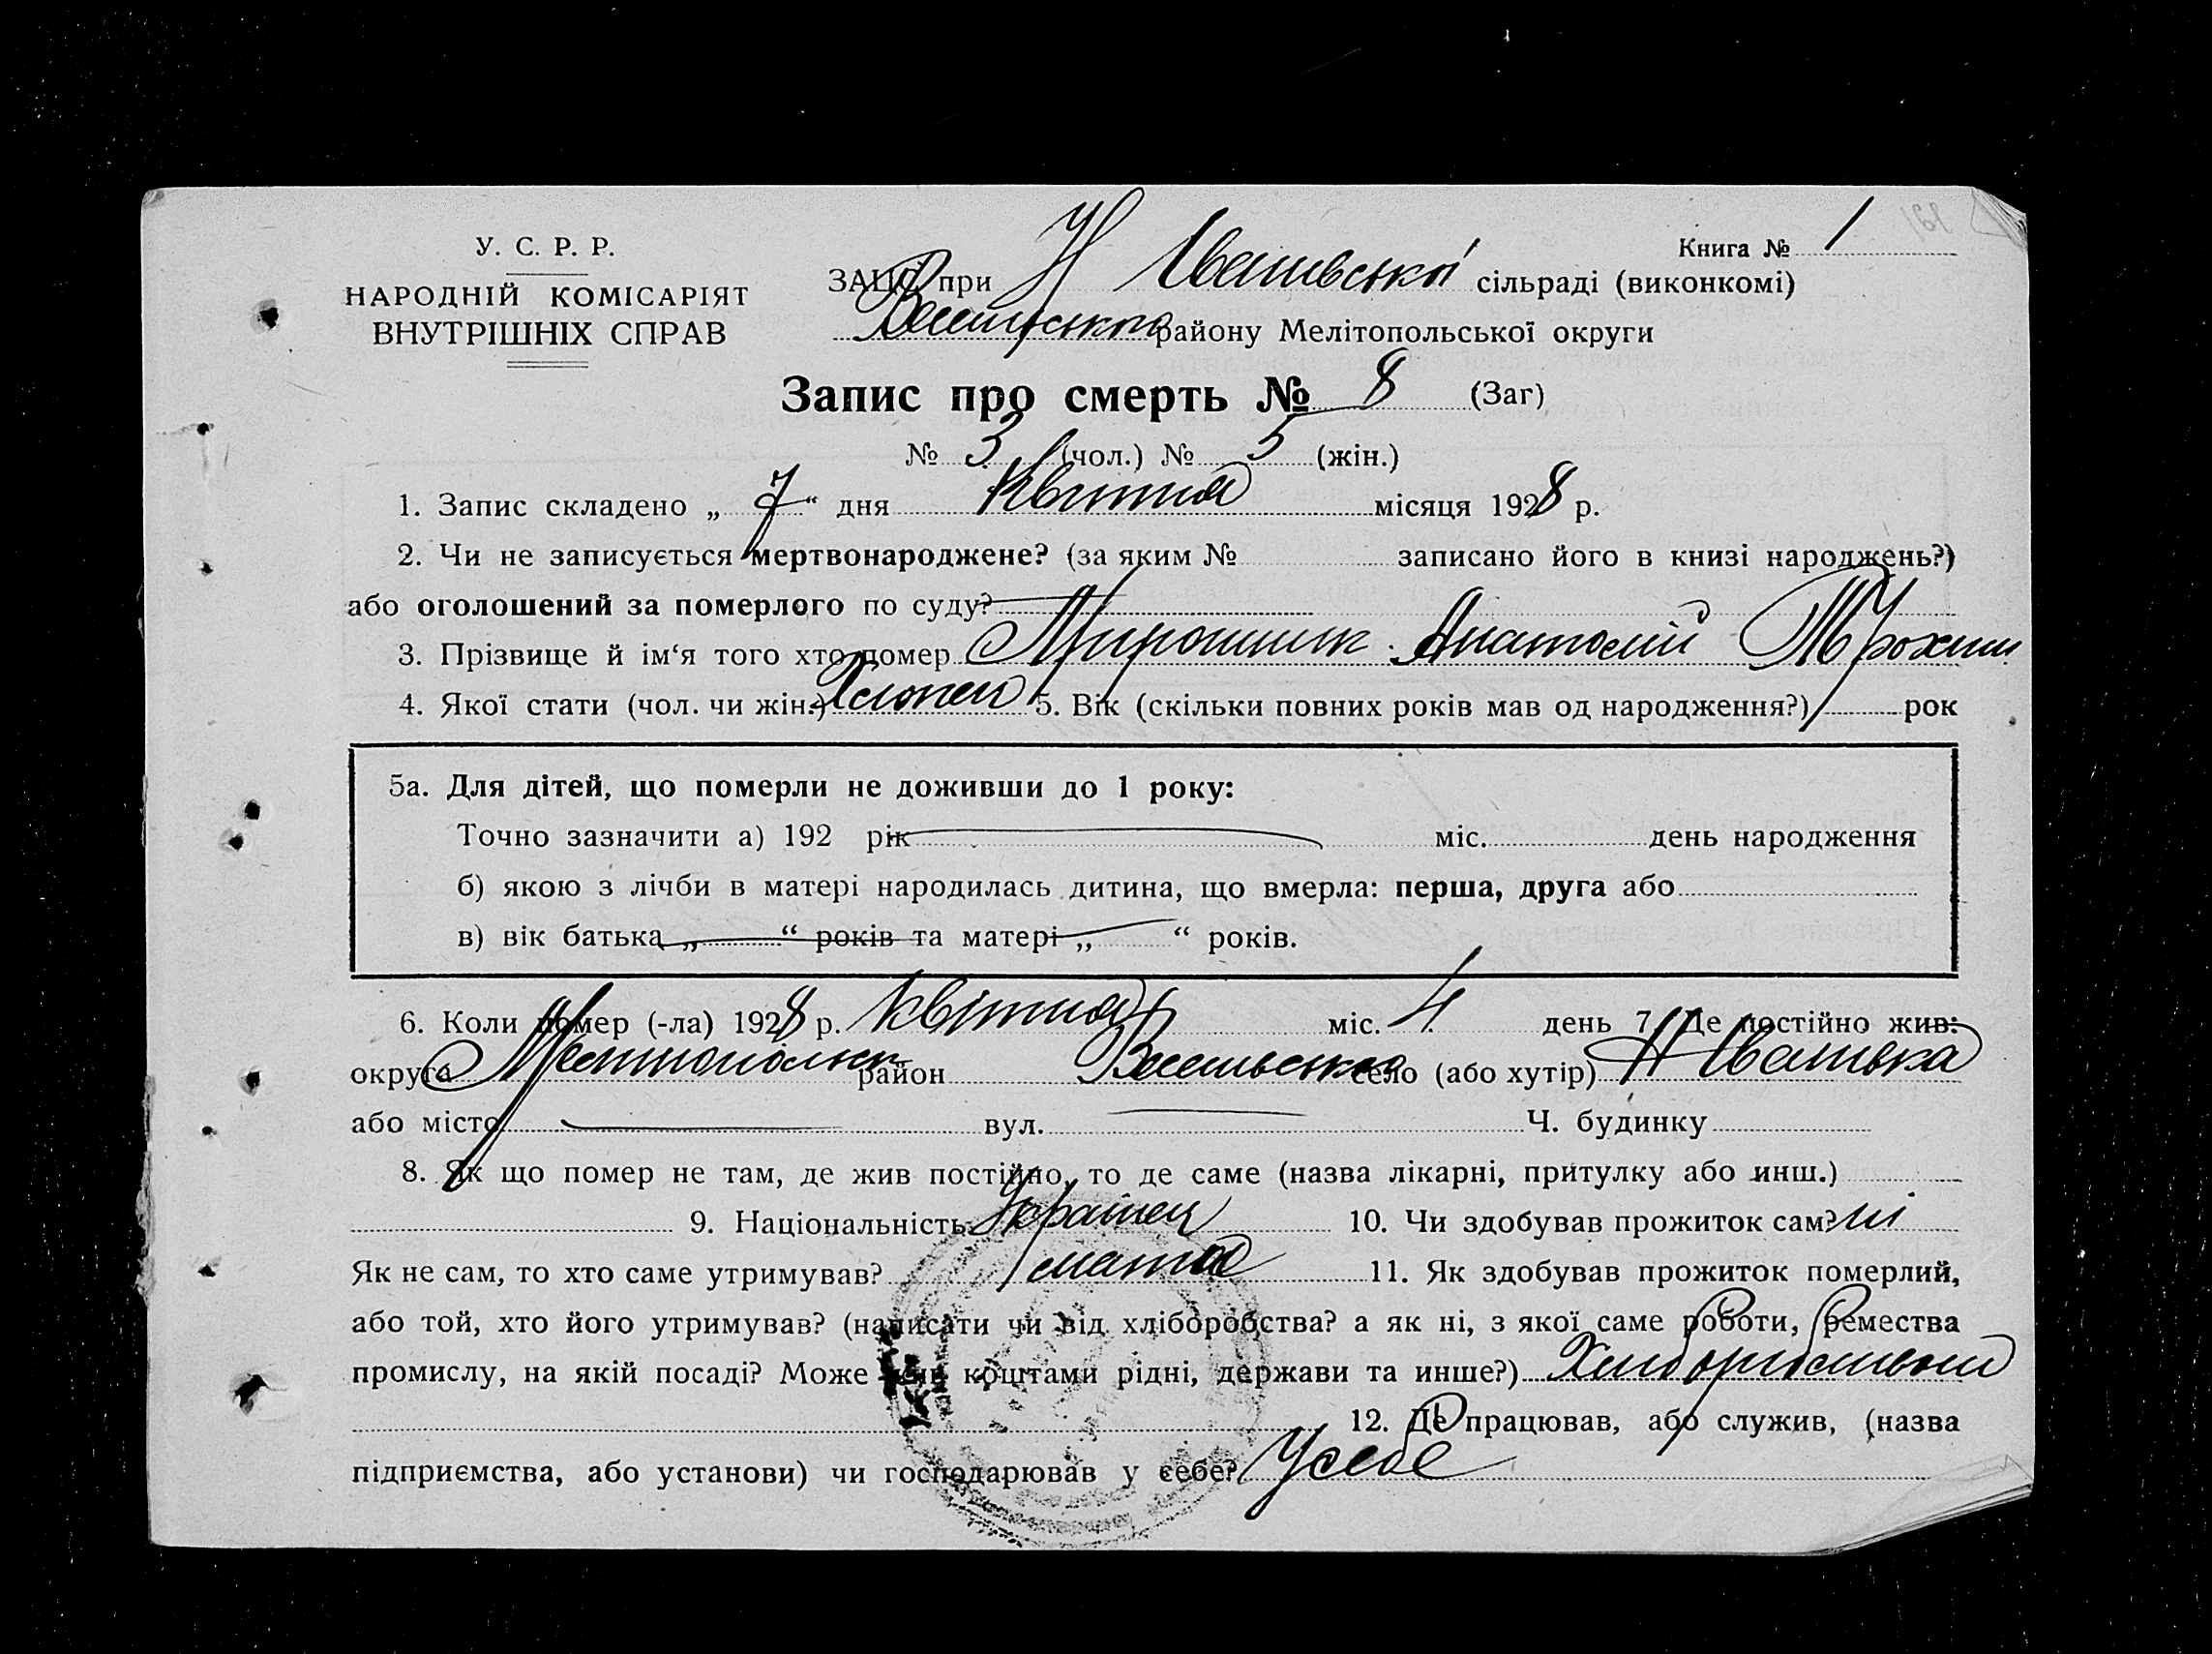 Книга № 1
У. С. Р. Р.
НАРОДНІЙ КОМІСАРІЯТ
ВНУТРІШНІХ СПРАВ
ЗАЦС при Н Іванівської сільраді (виконкомі)
району Мелітопольської округи
Запис про смерть № 8 (Заг)
№ 3 (чол.) № 5 (жін.)
1. Запис складено „ 7 “ дня Квітня місяця 1928 р.
2. Чи не записується мертвонароджене? (за яким № записано його в книзі народжень?)
або оголошений за померлого по суду?
3. Прізвище й ім‘я того хто помер Мирошник Анатолій Трохим
4. Якої стати (чол. чи жін.) Хлопец 5. Вік (скільки повних років мав од народження?) 1 рок
5а. Для дітей, що померли не доживши до 1 року:
Точно зазначити а) 192 рік міс. день народження
б) якою з лічби в матері народилась дитина, що вмерла: перша, друга або
в) вік батька „ “ років та матері „ “ років.
6. Коли помер (-ла) 1928 р. Квітня міс. 4 день 7. Де постійно жив:
округа район село (або хутір) Н Іванівка
або місто вул. Ч. будинку
8. Як що помер не там, де жив постійно, то де саме (назва лікарні, притулку або инш.)
9. Національність Українец 10. Чи здобував прожиток сам? ні
Як не сам, то хто саме утримував? 11. Як здобував прожиток померлий,
або той, хто його утримував? (написати чи від хліборобства? а як ні, з якої саме роботи, ремества
промислу, на якій посаді? Може коштами рідні, держави та инше?) Хліборобством
12. Де працював, або служив, (назва
підприємства, або установи) чи господарював у себе? У себе